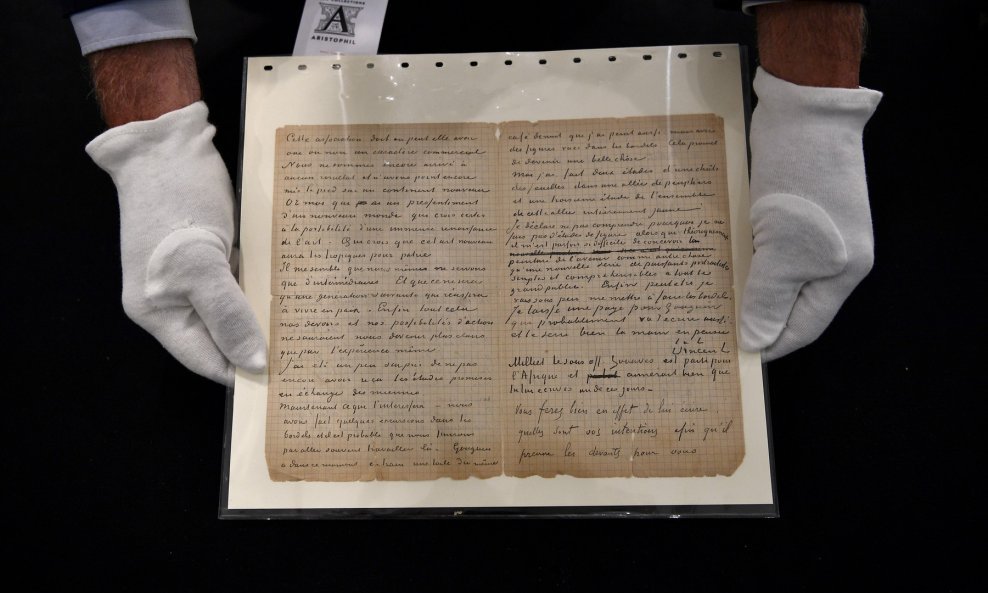 ARISTOPHIL
Cette association doit ou peut elle avoir
oui ou non un caractère commercial
Nous ne sommes encore arrivé à
aucun resultat et n'avons point encore
mis le pied sur un continent nouveau
Or moi que ai un pressentiment
d'un nouveau monde qui crois certes
a la possibilité d'une immense renaissance
de l'art. Qui crois que cet art nouveau
aura les tropiques pour patrie
Il me semble que nous memes ne servons
que d'intermédiaires. Et que ce ne sera
qu'une generation suivante qui réussira
à vivre en paix. Enfin tout cela
nos devoirs et nos possibilités d'action
ne sauraient nous devenir plus clairs
que par l'expérience même
J'ai été un peu surpris de ne pas
encore avoir reçu les études promises
en échange des miennes
Maintenant ce que t'interessera - nous
avons fait quelques excursions dans les
bordels et il est probable que nous finirons
par aller souvent travailler là. Gauguin
a dans ce moment en train une toile du même
café de nuit que j'ai peint aussi mais avec
des figures vues dans les bordels. Cela promet
de devenir une belle chose
moi j'ai fait deux études d'une chûte
des feuilles dans une allée de peupliers
et une troisième étude de l'ensemble
de cette allée entièrement jaune.
Je déclare ne pas comprendre pourquoi je ne
fais pas d'études de figure alors que théoriquement
il m'est parfois si difficile de concevoir la
peinture de l'avenir comme autre chose
qu'une nouvelle serie de puissants portraitistes
simples et comprehensibles à tout le
grand public. Enfin peut être je
vais sous peu me mettre à faire les bordels.
Je laisse une page pour Gauguin
qui probablement va t'écrire aussi
et te serre bien la main en pensée
t. à t.
Vincent
Milliet le sous off. Zouaves est parti pour
l'Afrique et aimerait bien que
tu lui écrives un de ces jours.-
Vous ferez bien en effet de lui écrire
quelles sont vos intentions afin qu'il
prenne les devants pour vous